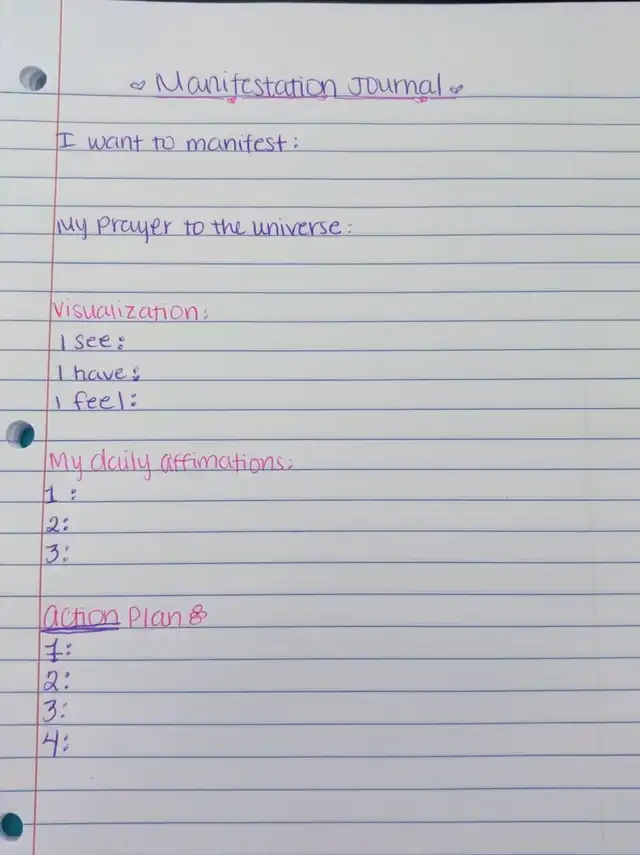 ♡ Manifestation Journal ♡
I want to manifest:
My prayer to the universe:
Visualization:
I see:
I have:
I feel:
My daily affimations:
1:
2:
3:
action Plan:
1:
2:
3:
4: